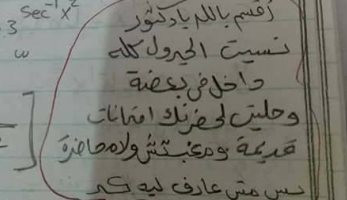 sec⁻¹ x²
3
أقسم بالله يا دكتور
نسيت الجدول كله
داخل في بعضة
وحليت لحضرتك امتحانات
قديمة ومغبتش ولا محاضرة
بس مش عارف ليه كده